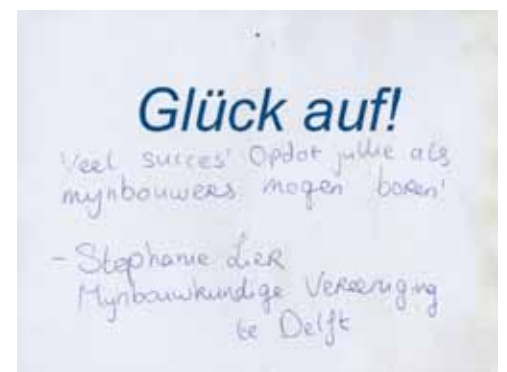 Glück auf!
Veel succes! Opdat jullie als
mijnbouwers mogen boren!
- Stephanie Lier
Mijnbouwkundige Vereeniging
te Delft